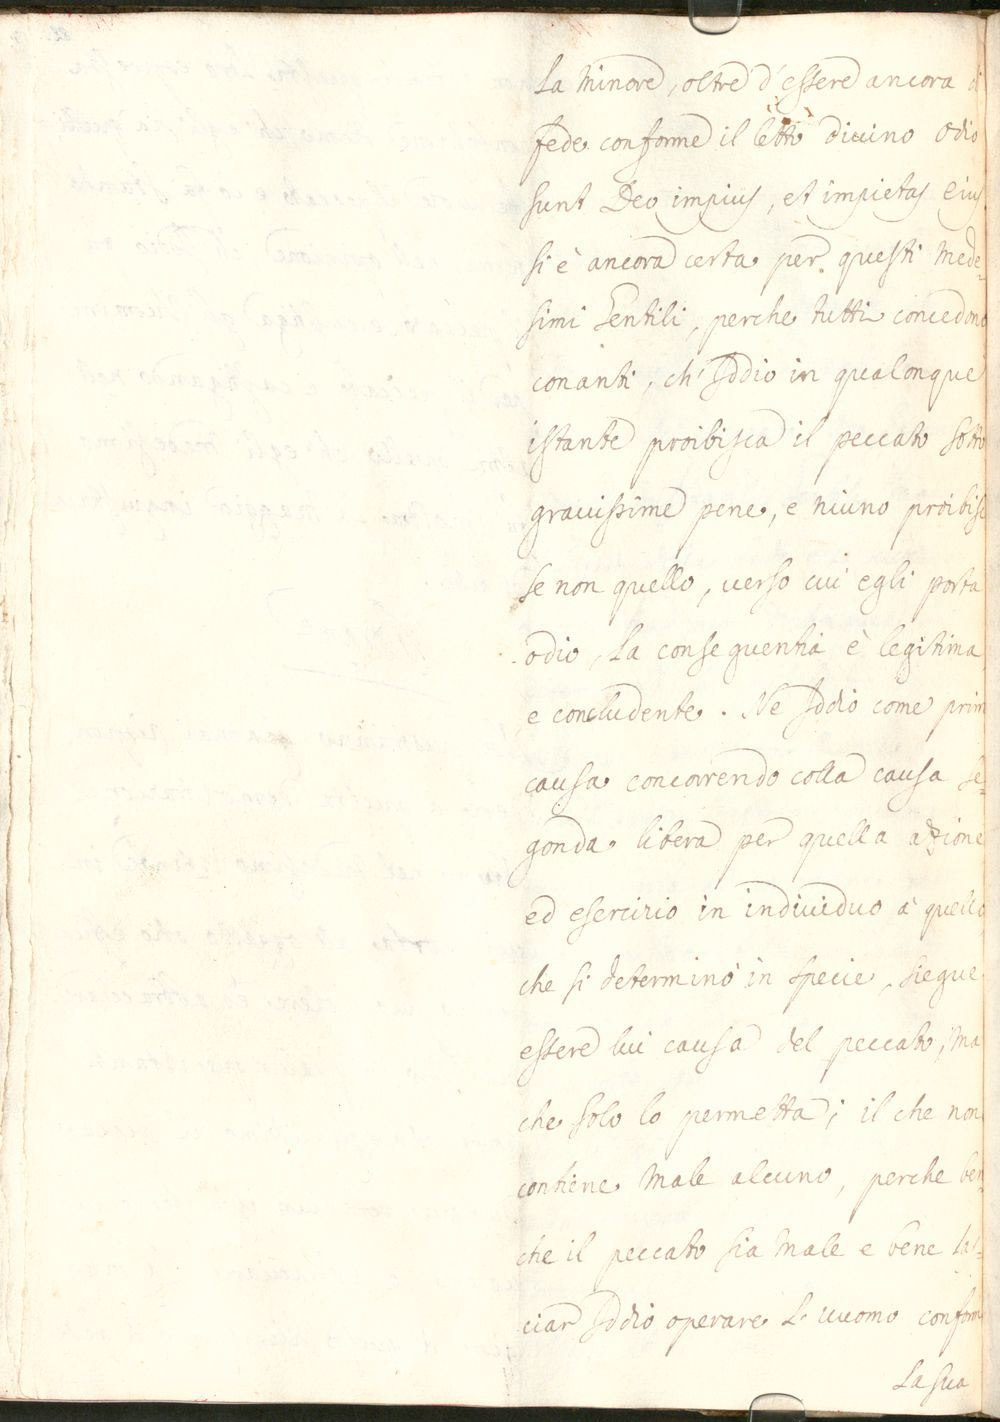 La minore, oltre d'essere ancora di
fede conforme il letto divino odio
sunt Deo impius, et impietas eius
si è ancora certa per questi mede-
simi Gentili, perche tutti concedono
conanti, ch'Iddio in qualonque
istante proibisca il peccato sotto
gravissime pene, e niuno proibisc
se non quello, verso cui egli porta
odio, la conseguentia è legitima
e concludente. Ne Iddio come prim
causa concorrendo colla causa se-
gonda libera per quella azzione
ed esercizio in individuo à quello
che si determinò in specie, siegue
essere lui causa del peccato, ma
che solo lo permetta; il che non
contiene male alcuno, perche ben
che il peccato sia male e bene las-
ciar Iddio operare L'uuomo conform
La sua